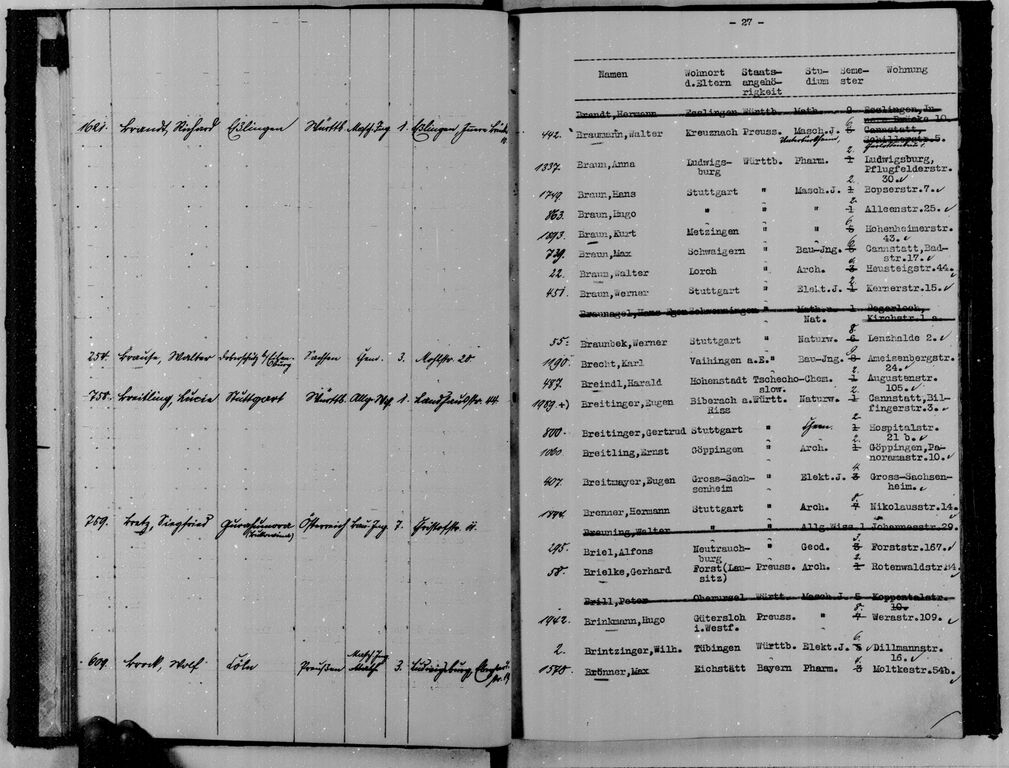 1621. Brandt, Richard Eßlingen Württb. Masch. Ing 1. Eßlingen, Innere Brücke
254. Krause, Walter Sachsen Chem. 3. Moltkestr. 20
758. Breitling, Lucie Stuttgart Württb. Allg. Wiss. 1. Landhausstr. 44
759. Bretz, Siegfried Gurahumora Österreich Bau Ing. 7. Christofstr. 11.
(Bukowina)
Masch. Ing
609. Brock, Wolf Cöln Preußen 3. Ludwigsburg,
- 27 -
Namen Wohnort Staats- Stu- Seme- Wohnung
d.Eltern angehö- dium ster
rigkeit
Brandt,Hermann Esslingen Württb. Math. Esslingen,In
nere Brücke 10.
442. Braumann,Walter Kreuznach Preuss. Masch.J. 6 5 Cannstatt,
Untertürkheim, Schillerstr.5.
1337. Braun,Anna Ludwigs- Württb. Pharm. 2. 1 Ludwigsburg,
burg Pflugfelderstr.
30.
1749. Braun,Hans Stuttgart " Masch.J. 2. 1 Bopserstr.7.
863. Braun,Hugo " " " 2. 1 Alleenstr.25.
1893. Braun,Kurt Metzingen " " 6. 5 Hohenheimerstr.
43.
729. Braun,Max Schwaigern " Bau-Jng. 6. 5 Cannstatt,Bad-
str.17.
22. Braun,Walter Lorch " Arch. 3 Hausteigstr.44.
451. Braun,Werner Stuttgart " Elekt.J. 2. 1 Kernerstr.15.
Braunagel,Hans Egon Schwenningen " Math.u. 1 Degerloch,
Nat. Kirchstr.1 a.
55. Braunbek,Werner Stuttgart " Naturw. 8. 6 Lenzhalde 2.
1190. Brecht,Karl Vaihingen a.E. " Bau-Jng. 8 Ameisenbergstr.
24.
487. Breindl,Harald Hohenstadt Tschecho- Chem. 2. 1 Augustenstr.
slow. 105.
1989.+) Breitinger,Eugen Biberach a. Württ. Naturw. 2. 1 Cannstatt,Bil-
Riss fingerstr.3.
800. Breitinger,Gertrud Stuttgart " Chem. 2. 1 Hospitalstr.
21 b.
1060. Breitling,Ernst Göppingen " Arch. 2. 1 Göppingen,Pa-
noramastr.10.
407. Breitmayer,Eugen Gross-Sach- " Elekt.J. 4. 3 Gross-Sachsen-
senheim heim.
Brenner,Hermann Stuttgart " Arch. 4 Nikolausstr.14.
Breuning,Walter " " Allg.Wiss.1 Johannesstr.29.
295. Briel,Alfons Neutrauch- " Geod. 3 Forststr.167.
burg
58. Brielke,Gerhard Forst(Lau- Preuss. Arch. 2. 1 Rotenwaldstr.84
sitz)
Brill,Peter Oberursel Württ. Masch.J. 5 Koppentalstr.
10.
1942. Brinkmann,Hugo Gütersloh Preuss. " 8. 4 Werastr.109.
i.Westf.
2. Brintzinger,Wilh. Tübingen Württb. Elekt.J. 6. Dillmannstr.
16.
1578. Brönner,Max Eichstätt Bayern Pharm. 3 Moltkestr.54b.